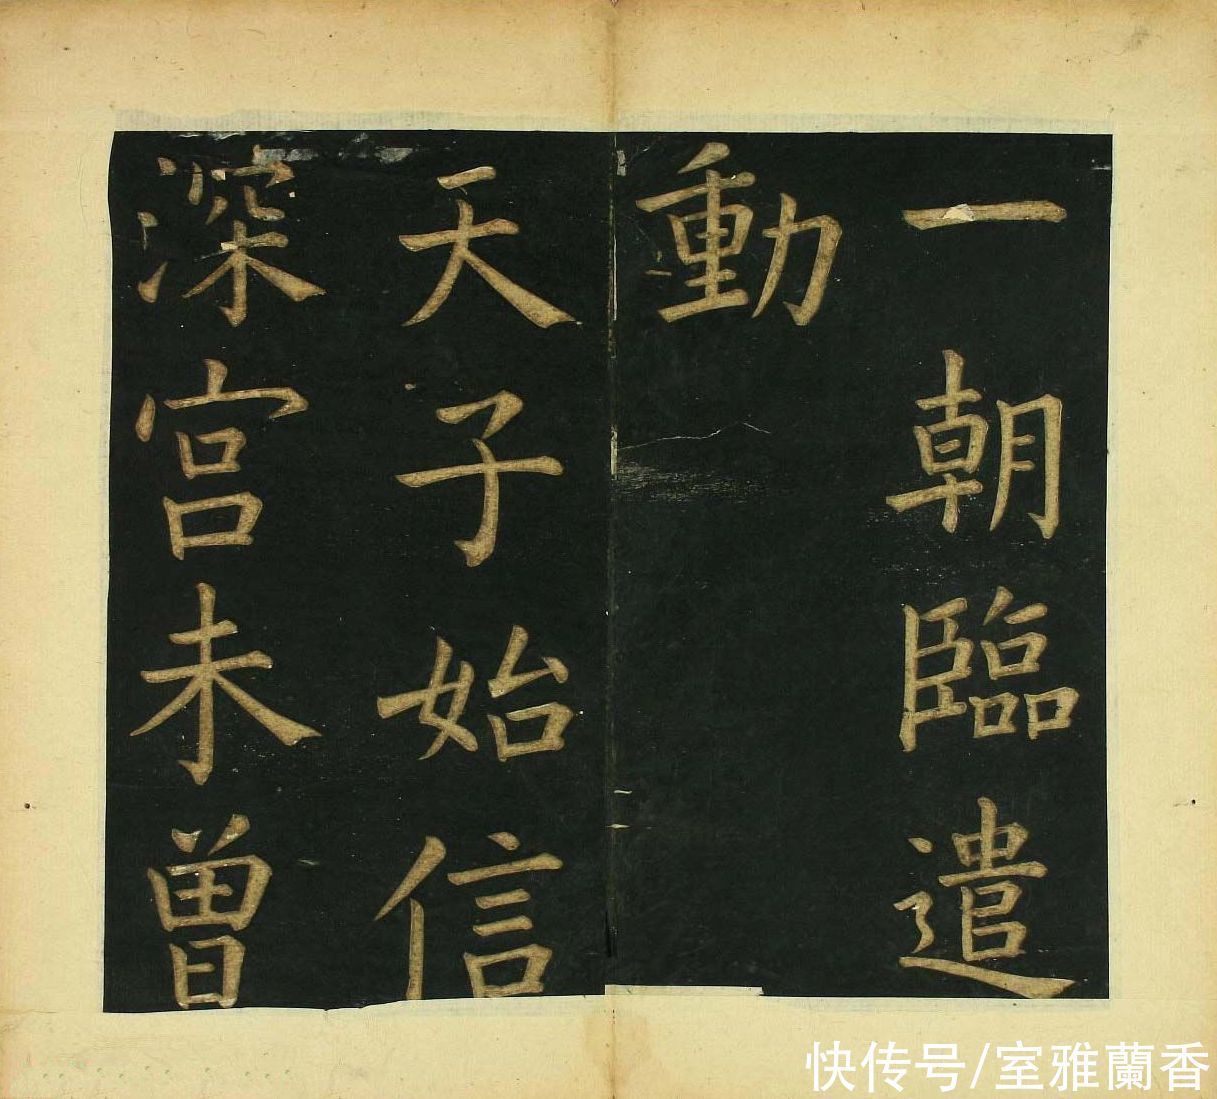 一朝臨遣
動
天子始信
深宫未曾
快传号/室雅蘭香